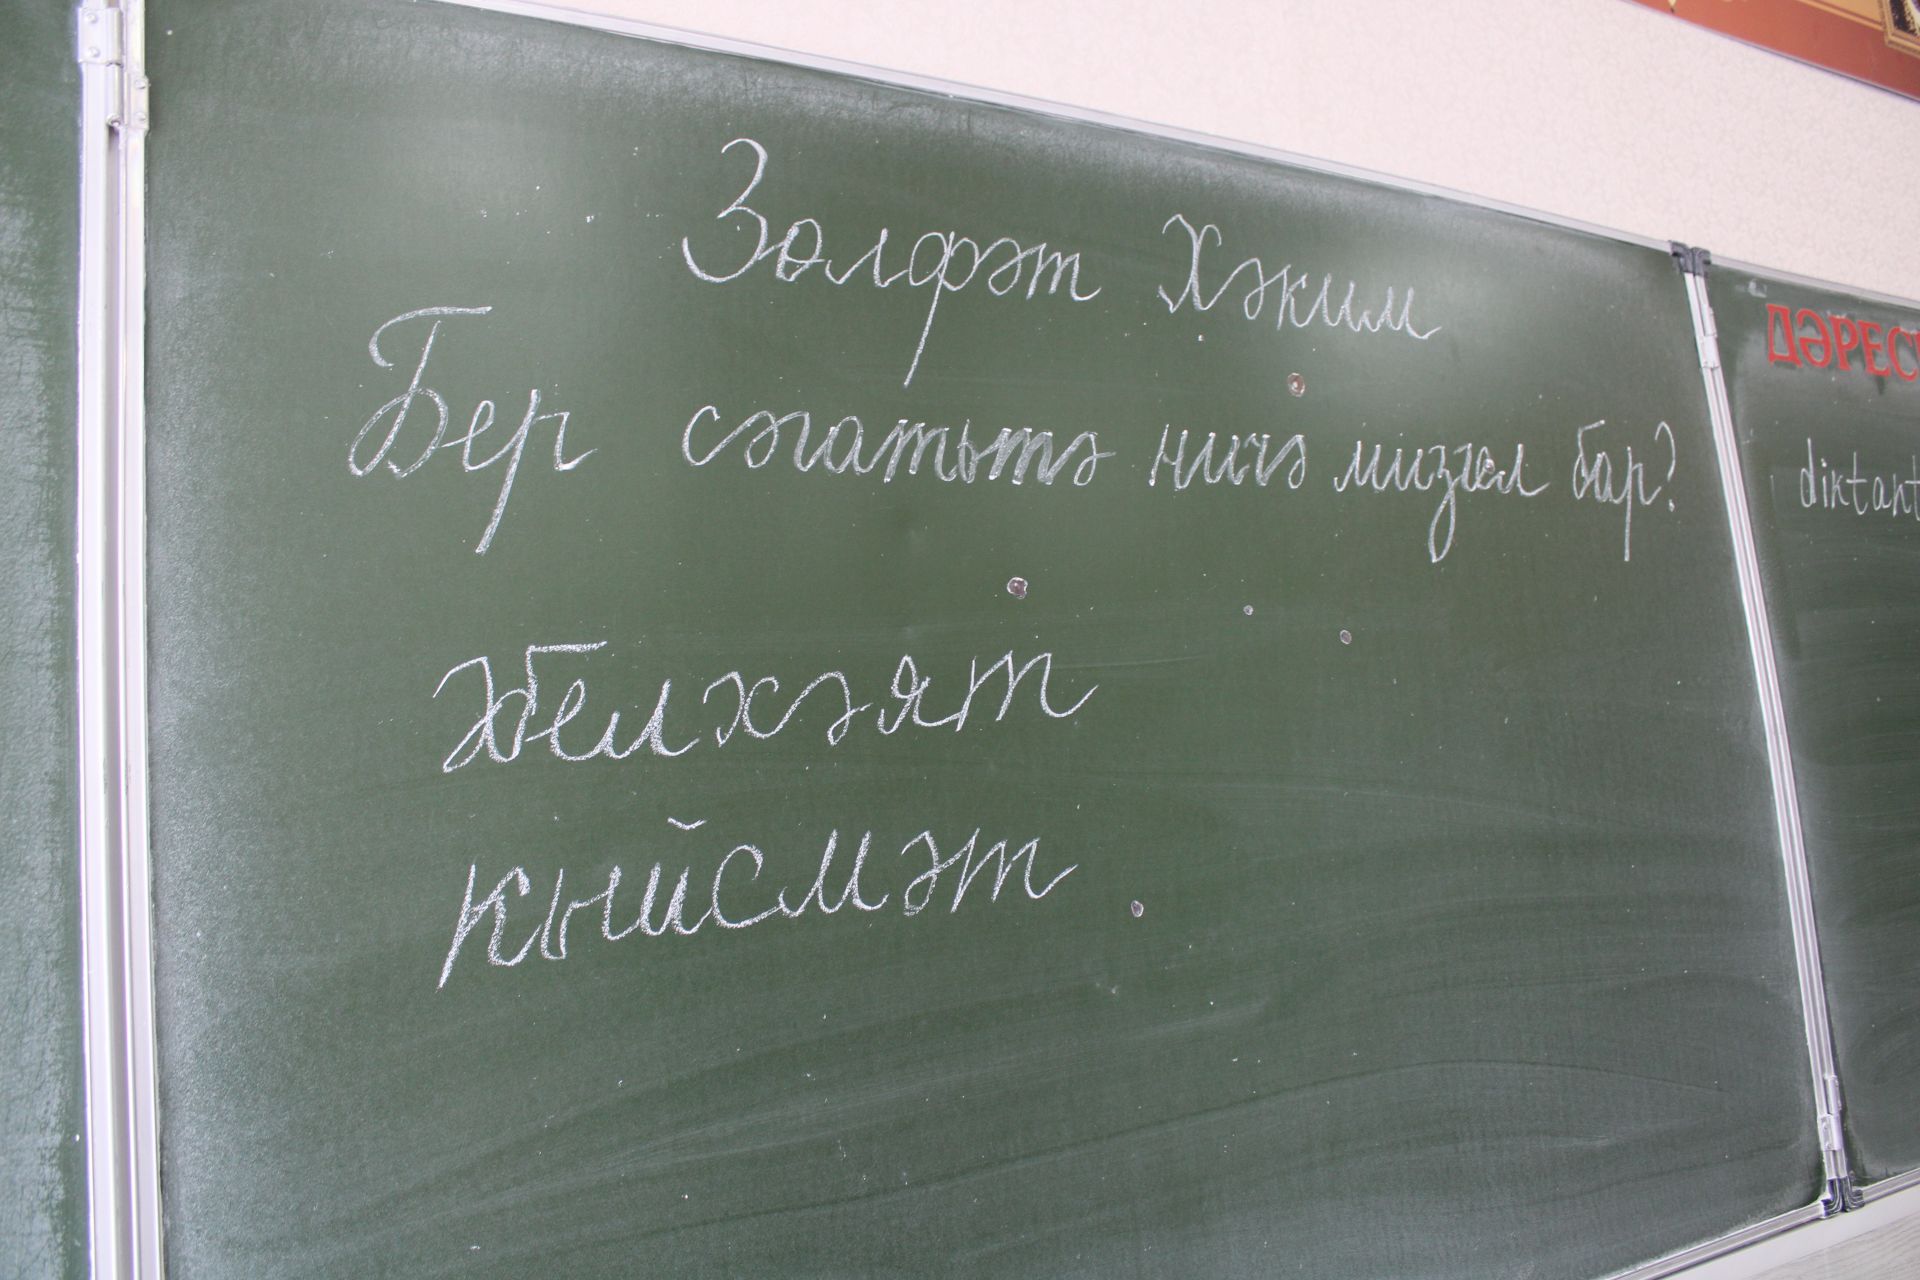 Зөлфәт Хәким
Бер сәгатьтә ничә мизгел бар?
әбелхәят
кыйсмәт
ДӘРЕС
diktant